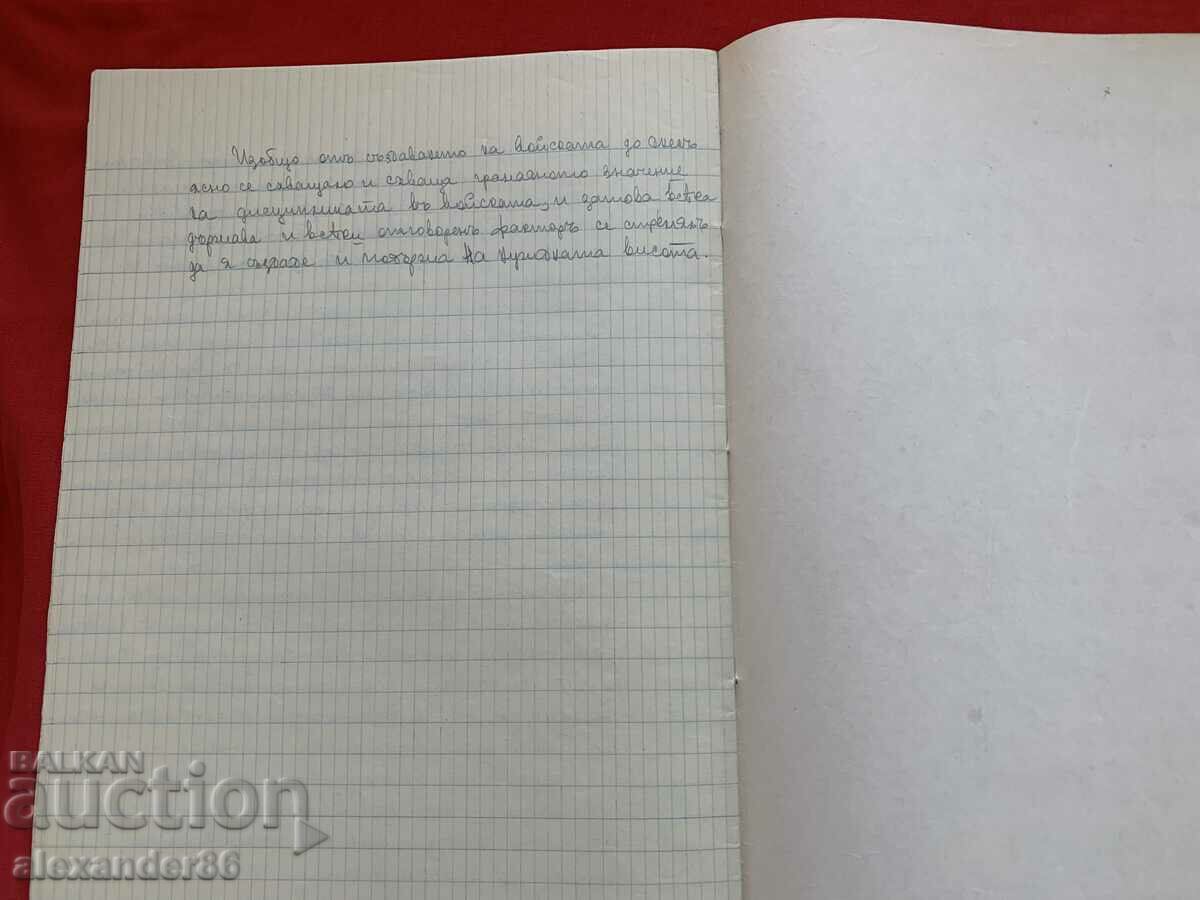 Изобщо отъ създаването на войската до снехъ
ясно се схващало и схваща грамадното значение
на дисциплината въ войската, и затова всѣка
държава и всѣки отговоренъ факторъ се стремятъ
да я създаде и на нужната висота.
BALKAN
auction
alexander86